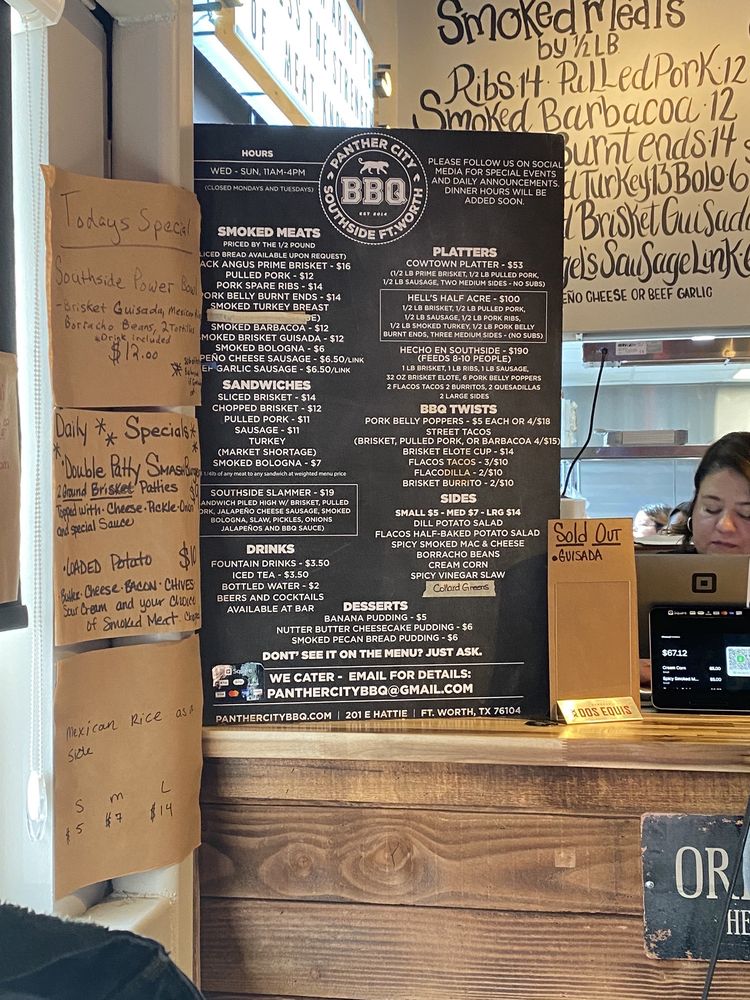 Todays Special
Southside Power
-Brisket Guisada, Mexican
Borracho Beans, 2 Tortillas
Drink included
$12.00
Daily Specials
Double Patty Smash
2 Ground Brisket Patties
Topped with: Cheese-Pickle-Onion
and special Sauce
LOADED Potato
Butter-Cheese-BACON-CHIVES
Sour Cream and your Choice
of Smoked Meat
Mexican Rice as a
side
S m L
$5 $7 $14
HOURS
WED - SUN, 11AM-4PM
(CLOSED MONDAYS AND TUESDAYS)
PANTHER CITY
BBQ
EST 2014
SOUTHSIDE FT. WORTH
PLEASE FOLLOW US ON SOCIAL
MEDIA FOR SPECIAL EVENTS
AND DAILY ANNOUNCEMENTS.
DINNER HOURS WILL BE
ADDED SOON.
SMOKED MEATS
PRICED BY THE 1/2 POUND
(SLICED BREAD AVAILABLE UPON REQUEST)
ACK ANGUS PRIME BRISKET - $16
PULLED PORK - $12
PORK SPARE RIBS - $14
ORK BELLY BURNT ENDS - $14
SMOKED TURKEY BREAST
SMOKED BARBACOA - $12
MOKED BRISKET GUISADA - $12
SMOKED BOLOGNA - $6
PEÑO CHEESE SAUSAGE - $6.50/LINK
EF GARLIC SAUSAGE - $6.50/LINK
SANDWICHES
SLICED BRISKET - $14
CHOPPED BRISKET - $12
PULLED PORK - $11
SAUSAGE - $11
TURKEY
(MARKET SHORTAGE)
SMOKED BOLOGNA - $7
1/4lb of any meat to any sandwich at weighted menu price
SOUTHSIDE SLAMMER - $19
ANDWICH PILED HIGH W/ BRISKET, PULLED
ORK, JALAPEÑO CHEESE SAUSAGE, SMOKED
BOLOGNA, SLAW, PICKLES, ONIONS
JALAPEÑOS AND BBQ SAUCE)
DRINKS
FOUNTAIN DRINKS - $3.50
ICED TEA - $3.50
BOTTLED WATER - $2
BEERS AND COCKTAILS
AVAILABLE AT BAR
PLATTERS
COWTOWN PLATTER - $53
(1/2 LB PRIME BRISKET, 1/2 LB PULLED PORK,
1/2 LB SAUSAGE, TWO MEDIUM SIDES - NO SUBS)
HELL'S HALF ACRE - $100
1 LB BRISKET, 1/2 LB PULLED PORK,
1/2 LB SAUSAGE, 1/2 LB PORK RIBS,
1/2 LB SMOKED TURKEY, 1/2 LB PORK BELLY
BURNT ENDS, THREE MEDIUM SIDES - (NO SUBS)
HECHO EN SOUTHSIDE - $190
(FEEDS 8-10 PEOPLE)
1 LB BRISKET, 1 LB RIBS, 1 LB SAUSAGE,
32 OZ BRISKET ELOTE, 6 PORK BELLY POPPERS
2 FLACOS TACOS 2 BURRITOS, 2 QUESADILLAS
2 LARGE SIDES
BBQ TWISTS
PORK BELLY POPPERS - $5 EACH OR 4/$18
STREET TACOS
(BRISKET, PULLED PORK, OR BARBACOA 4/$15)
BRISKET ELOTE CUP - $14
FLACOS TACOS - 3/$10
FLACODILLA - 2/$10
BRISKET BURRITO - 2/$10
SIDES
SMALL $5 - MED $7 - LRG $14
DILL POTATO SALAD
FLACOS HALF-BAKED POTATO SALAD
SPICY SMOKED MAC & CHEESE
BORRACHO BEANS
CREAM CORN
SPICY VINEGAR SLAW
Collard Greens
DESSERTS
BANANA PUDDING - $5
NUTTER BUTTER CHEESECAKE PUDDING - $6
SMOKED PECAN BREAD PUDDING - $6
DONT' SEE IT ON THE MENU? JUST ASK.
WE CATER - EMAIL FOR DETAILS:
PANTHERCITYBBQ@GMAIL.COM
PANTHERCITYBBQ.COM | 201 E HATTIE | FT. WORTH, TX 76104
Smoked Meats
by 1/2 LB
Ribs·14·PulledPork·12
Smoked Barbacoa·12
urnt ends·14
dTurkey13 Bolo·6
Brisket Guisada
gel's Sausage Link
EÑO CHEESE OR BEEF GARLIC
Sold Out
•GUISADA
DOS EQUIS
$67.12
Cream Corn $5.00
Spicy Smoked M...
OR
HE